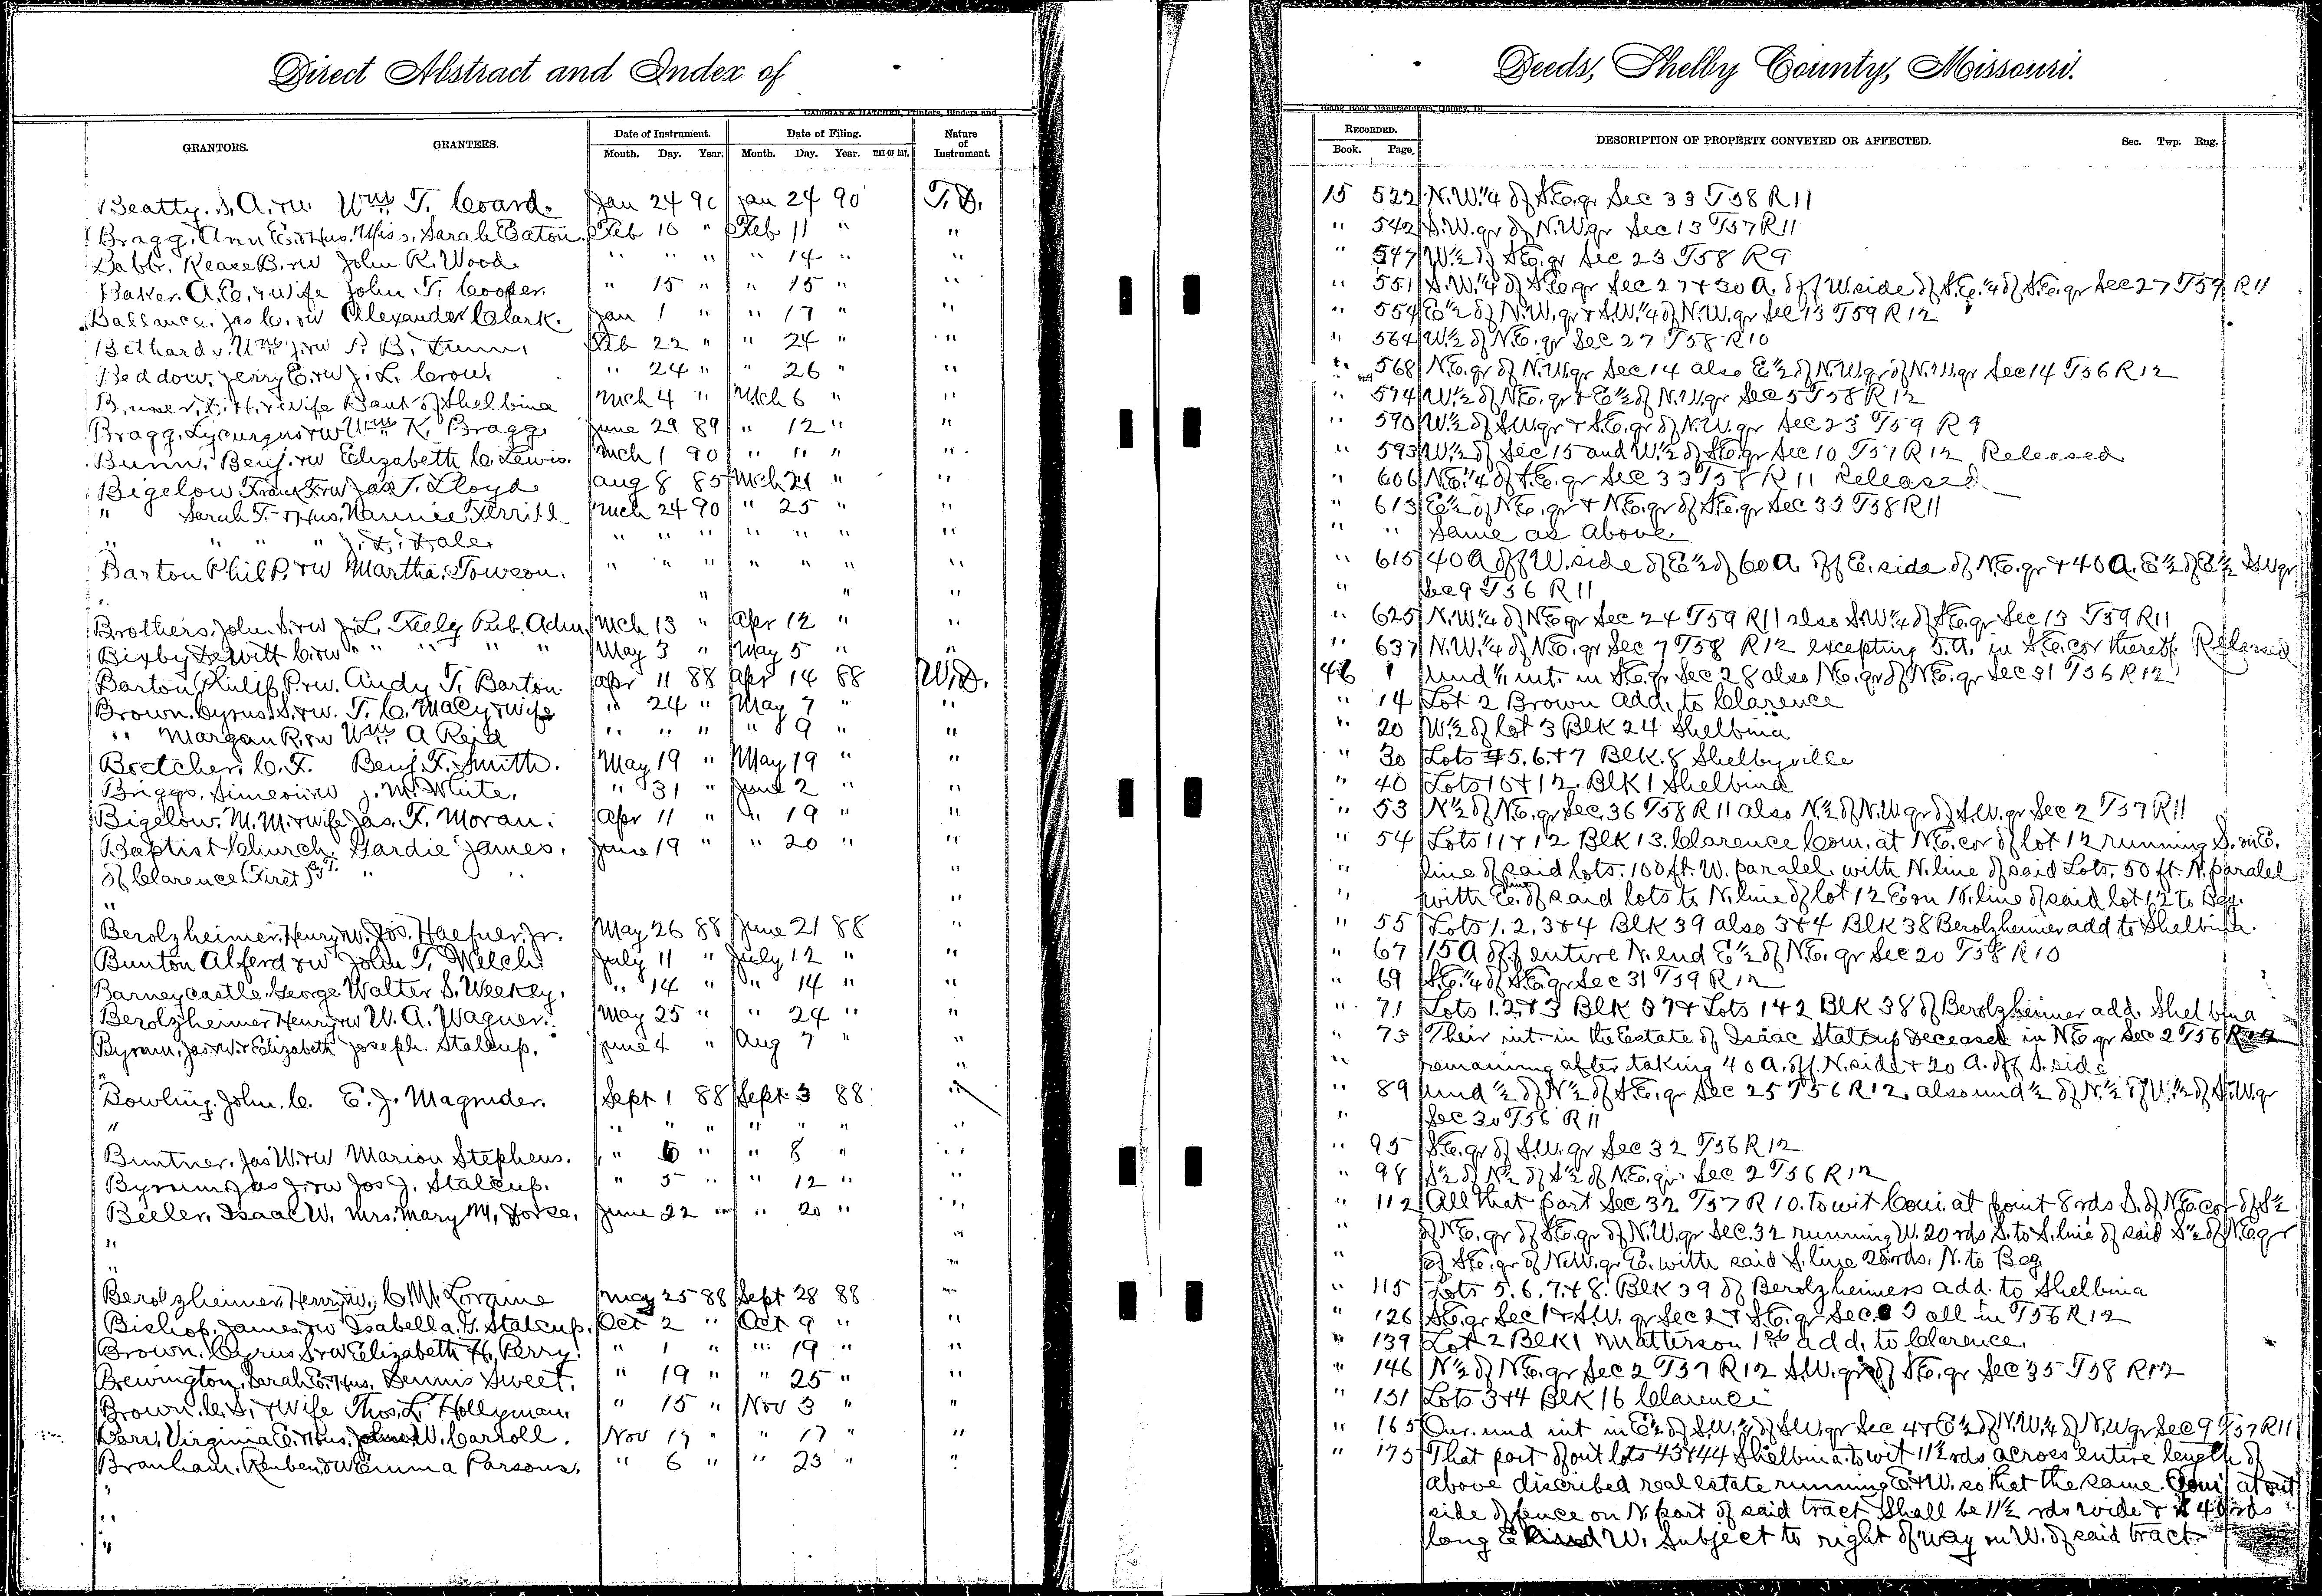 Direct Abstract and Index of
Deeds, Shelby County, Missouri.
GRANTORS. GRANTEES. Date of Instrument. Date of Filing. Nature of Instrument.
Month. Day. Year. Month. Day. Year. TIME OF DAY.
RECORDED. DESCRIPTION OF PROPERTY CONVEYED OR AFFECTED. Sec. Twp. Rng.
Book. Page.
Beatty. S. A. rw Wm T. Coard. Jan 24 90 Jan 24 90 T.D. 15 522 N.W.¼ of S.E. qr Sec 33 T58 R11
Bragg, Ann E. r Hus. Miss. Sarah Eaton. Feb 10 " Feb 11 " " " 542 S.W. qr of N.W qr Sec 13 T57 R11
Babb. Rease B. rw John R. Wood " " " " 14 " " " 547 W½ of S.E. qr Sec 23 T58 R9
Baker. A. C. r wife John T. Cooper. " 15 " " 15 " " " 551 S.W.¼ of S.E. qr Sec 27 + 30 A. off W. side of S.E.¼ of S.E. qr Sec 27 T59 R11
Ballance. Jas C. rw Alexander Clark. Jan 1 " " 17 " " " 554 E½ of N.W. qr + S.W.¼ of N.W. qr Sec 13 T59 R12
Bethards. Wm J. rw P. B. Dunn, Feb 22 " " 24 " " " 564 W.½ of N.E. qr Sec 27 T58 R10
Beddow, Jerry C. rw J. L. Crow. " 24 " " 26 " " " 568 N.E. qr of N.W. qr Sec 14 also E½ of N.W. qr of N.W. qr Sec 14 T56 R12
H. r wife Bank of Shelbina Mch 4 " Mch 6 " " " 574 W.½ of N.E. qr + E½ of N.W. qr Sec 5 T58 R12
Bragg, Lycurgus rw Wm K. Bragg June 29 89 " 12 " " " 590 W.½ of S.W. qr + S.E. qr of N.W. qr Sec 23 T59 R9
Bunn, Benj. rw Elizabeth C. Lewis. Mch 1 90 " " " " " 593 W.½ of Sec 15 and W.½ of S.E. qr Sec 10 T57 R12 Released
Bigelow Frank F. rw Jas. T. Lloyd Aug 8 85 Mch 21 " " " 606 N.E.¼ of S.E. qr Sec 33 T58 R11 Released
" Sarah T. r Hus. Nannie Terrill Mch 24 90 " 25 " " " 613 E½ of N.E. qr + N.E. qr of S.E. qr Sec 33 T58 R11
" " " J. D. Dale " " " " " " " " " Same as above.
Barton Phil P. rw Martha. Towson. " " " " " " " " 615 40 A off W. side of E½ of 60 A. off E. side of N.E. qr + 40 A. E½ of E½ S.W qr
" " " " " Sec 9 T56 R11
Brothers, John S. rw J. L. Feely Pub. Adm. Mch 13 " Apr 12 " " " 625 N.W.¼ of N.E. qr Sec 24 T59 R11 also S.W.¼ of S.E. qr Sec 13 T59 R11
Bixby Dewitt C. rw " " " " May 3 " May 5 " " " 637 N.W.¼ of N.E. qr Sec 7 T58 R12 excepting 5. A. in S.E. cor thereof. Released
Barton Philip P. rw. Andy T. Barton Apr 11 88 Apr 14 88 W.D. 46 1 und int. in S.E. qr Sec 28 also N.E. qr of N.E. qr Sec 31 T56 R12
Brown. Cyrus. S. rw. T. C. Macy r wife " 24 " May 7 " " " 14 Lot 2 Brown add. to Clarence
" Morgan R. rw Wm A Reid " " " " 9 " " " 20 W.½ of lot 3 BLK 24 Shelbina
Boetcher. C. F. Benj. F. Smith. May 19 " May 19 " " " 30 Lots 5. 6. + 7 BLK. 8 Shelbyville
Briggs. Simeon rw J. M. White. " 31 " June 2 " " " 40 Lots 10 + 12. BLK 1 Shelbina
Bigelow. M. M. r wife Jas. F. Moran. Apr 11 " " 19 " " " 53 N½ of N.E. qr Sec. 36 T58 R11 also N.½ of N.W qr of S.W. qr Sec 2 T57 R11
Baptist Church. Gardie James. June 19 " " 20 " " " 54 Lots 11 + 12 BLK 13. Clarence Com. at N.E. cor of lot 12 running S. on E.
of Clarence (First) by T. " " " " line of said lots. 100 ft. W. paralel. with N. line of said Lots. 50 ft. N. paralel
" " " with E. line of said lots to N. line of lot 12 E on N. line of said lot 12 to Beg.
Berolzheimer, Henry rw. Jos. Haefner. Jr. May 26 88 June 21 88 " " 55 Lots 1. 2. 3 + 4 BLK 39 also 3 + 4 BLK 38 Berolzheimer add to Shelbina.
Bunton Alferd rw John T. Welch July 11 " July 12 " " " 67 15 A off entire N. end E½ of N.E. qr Sec 20 T58 R10
Barneycastle. George Walter S. Weekley. " 14 " " 14 " " " 69 S.E.¼ of S.E. qr Sec 31 T59 R12
Berolzheimer Henry rw W. A. Wagner. May 25 " " 24 " " " 71 Lots 1. 2. + 3 BLK 37 + Lots 1 + 2 BLK 38 of Berolzheimer add. Shelbina
Byrum, Jas. W. r Elizabeth Joseph. Stalcup. June 4 " Aug 7 " " " 73 Their int. in the Estate of Isaac Stalcup Deceased in N.E. qr Sec 2 T56 R12
" " " remaining after taking 40 A. off. N. side + 20 A. off S. side
Bowling. John. C. E. J. Magruder. Sept 1 88 Sept 3 88 " " 89 und ½ of N½ of S.E. qr Sec 25 T56 R12. also und ½ of N.½ of W.½ of S.W. qr
" " " " " " " " " Sec 30 T56 R11
Buntner. Jas W. rw Marion Stephens. " 6 " " 8 " " " 95 S.E. qr of S.W. qr Sec 32 T56 R12
Byrum Jas J. rw Jos J. Stalcup. " 5 " " 12 " " " 98 S½ of N½ of S½ of N.E. qr Sec 2 T56 R12
Beeler. Isaac W. Mrs. Mary M. June 22 " " 20 " " " 112 All that part Sec 32 T57 R10. to wit Com. at point 8 rds S. of N.E. cor of S½
" " " of N.E. qr of S.E. qr of N.W. qr Sec. 32 running W. 20 rds S. to S. line of said S½ of N.E. qr
" " " of S.E. qr of N.W. qr E. with said S. line 20 rds. N. to Beg.
Berolzheimer, Henry rw. C. M. Lorraine May 25 88 Sept 28 88 " " 115 Lots 5. 6. 7. + 8. BLK 39 of Berolzheimers add. to Shelbina
Bishop. James. rw Isabella. G. Stalcup. Oct 2 " Oct 9 " " " 126 S.E. qr Sec 1 + S.W. qr Sec 2 + S.E. qr Sec. 3 all in T56 R12
Brown. Cyrus S rw Elizabeth H. Perry. " 1 " " 19 " " " 139 Lot 2 BLK 1 Matterson 1st add. to Clarence.
Brewington, Sarah E. r Hus. Dennis Sweet. " 19 " " 25 " " " 146 N½ of N.E. qr Sec 2 T57 R12 S.W. qr of S.E. qr Sec 35 T58 R12
Brown. C. S. r wife Thos. L. Hollyman " 15 " Nov 3 " " " 151 Lots 3 + 4 BLK 16 Clarence
Barr, Virginia E. r Hus. John W. Carroll. Nov 17 " " 17 " " " 165 Our. und int in E½ of S.W.¼ of S.W. qr Sec 4 + E½ of N.W.¼ of N.W qr Sec 9 T57 R11
Branham. Reuben rw Emma Parsons. " 6 " " 23 " " " 175 That part of out lots 43 + 44 Shelbina. to wit 11½ rds across entire length of
" above discribed real estate running E. + W. so that the same. Com. at out
" side of fence on N. part of said tract Shall be 11½ rds wide + 40 rds
" long E and W. Subject to right of way on W. of said tract.